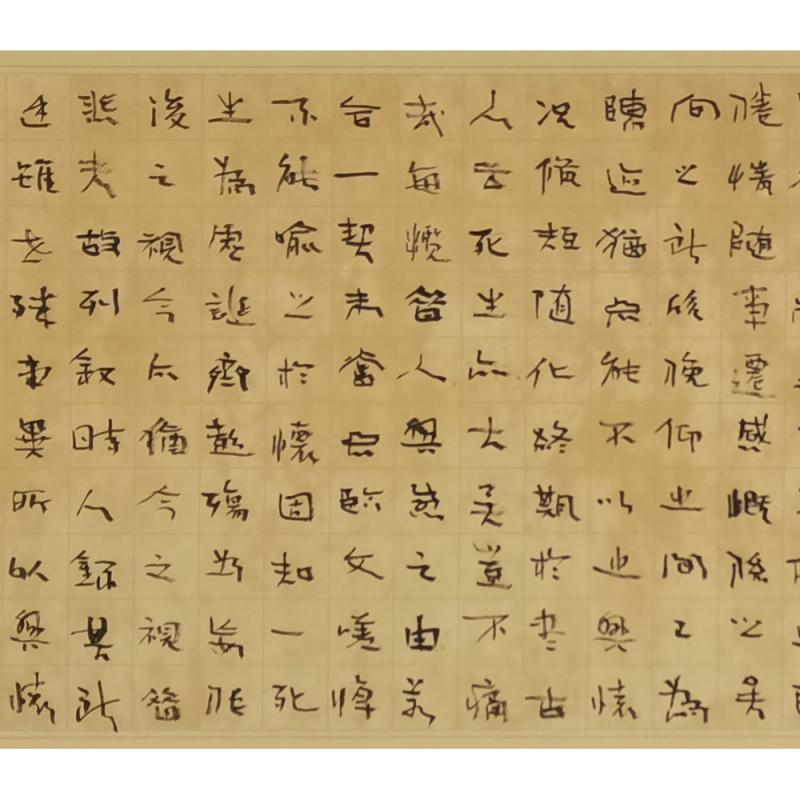 倦情随事遷感慨係之矣
向之所欣俛仰之間已為
陳迹猶不能不以之興懷
況脩短随化終期於盡古
人云死生亦大矣豈不痛
哉每攬昔人興感之由若
合一契未嘗不臨文嗟悼
不能喻之於懷固知一死
生為虛誕齊彭殤為妄作
後之視今亦猶今之視昔
悲夫故列叙時人録其所
述雖世殊事異所以興懷